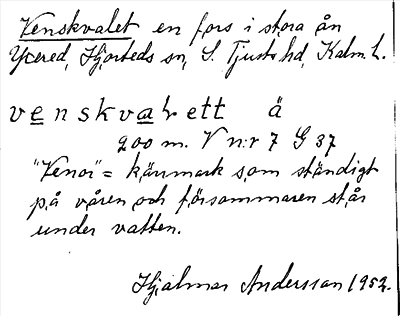 Venskvalet en fors i stora ån
Ycered, Hjorteds sn, S. Tjusts hd, Kalm. l.
venskvalet ett ä
200 m. V n:r 7 G 37
"Venor" = kärrmark som ständigt
på våren och försommaren står
under vatten.
Hjalmar Andersson 1952.